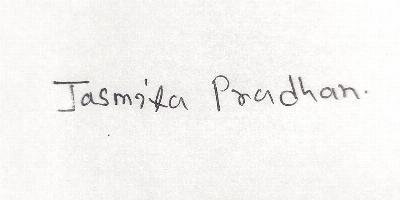 Jasmita Pradhan.